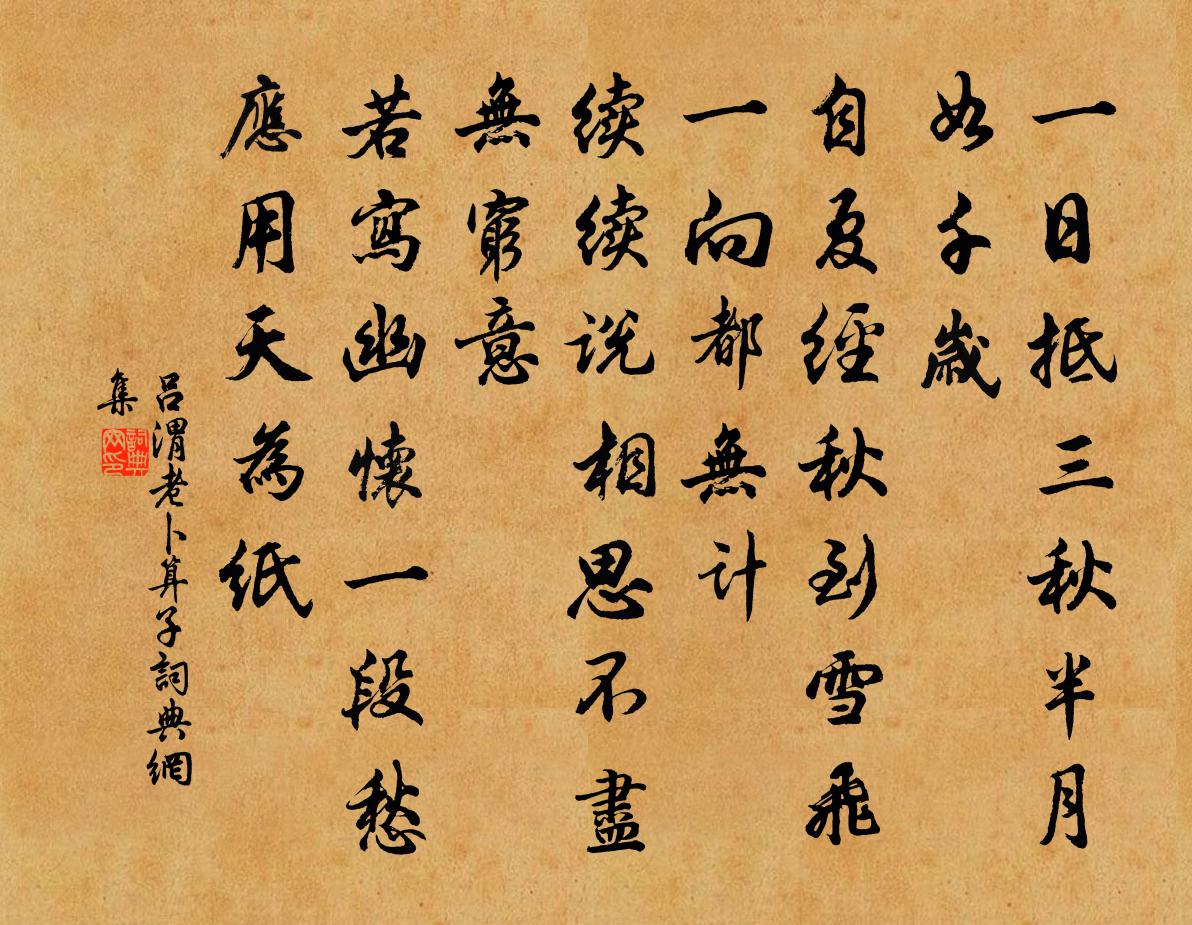 一日抵三秋半月
如千歲
自夏經秋到雪飛
一向都無計
續續說相思不盡
無窮意
若寫幽懷一段愁
應用天為紙
呂渭老卜算子詞典網
集
詞典
网印